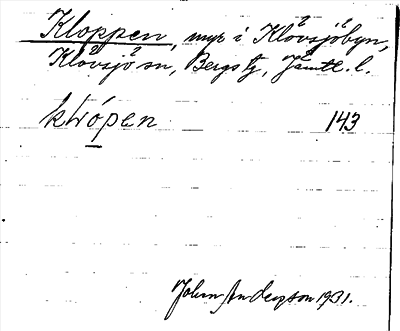 Kloppen, myr i Klövsjöbyn,
Klövsjö sn, Bergs tg, Jämtl. l.
143
John Anderson 1931.